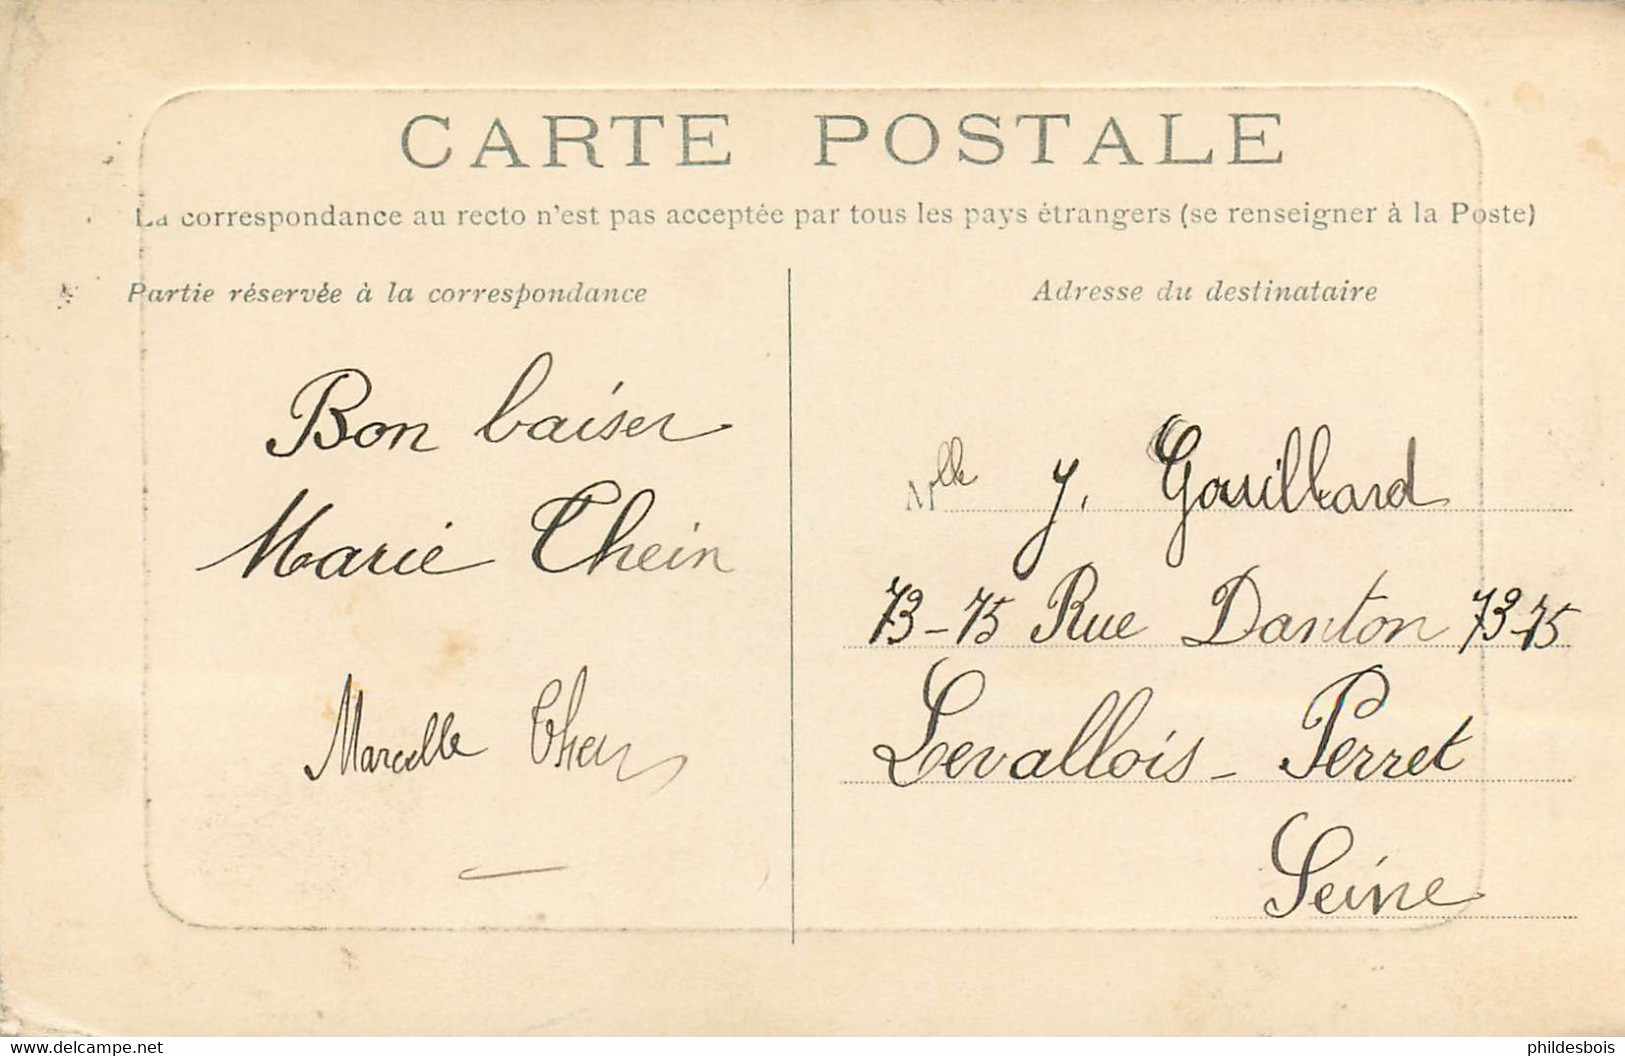 CARTE POSTALE
La correspondance au recto n'est pas acceptée par tous les pays étrangers (se renseigner à la Poste)
Partie réservée à la correspondance
Bon baiser
Marie Thein
Marcelle Thein
Adresse du destinataire
Mlle J. Gouillard
73-75 Rue Danton 73-75
Levallois-Perret
Seine
www.delcampe.net
phildesbois